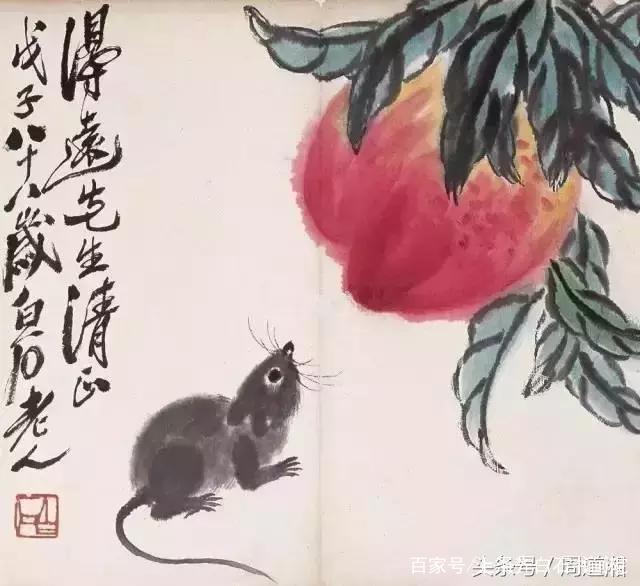 得遠先生清正
戊子八十八歲白石老人
百家号/
头条号 / 周道湘